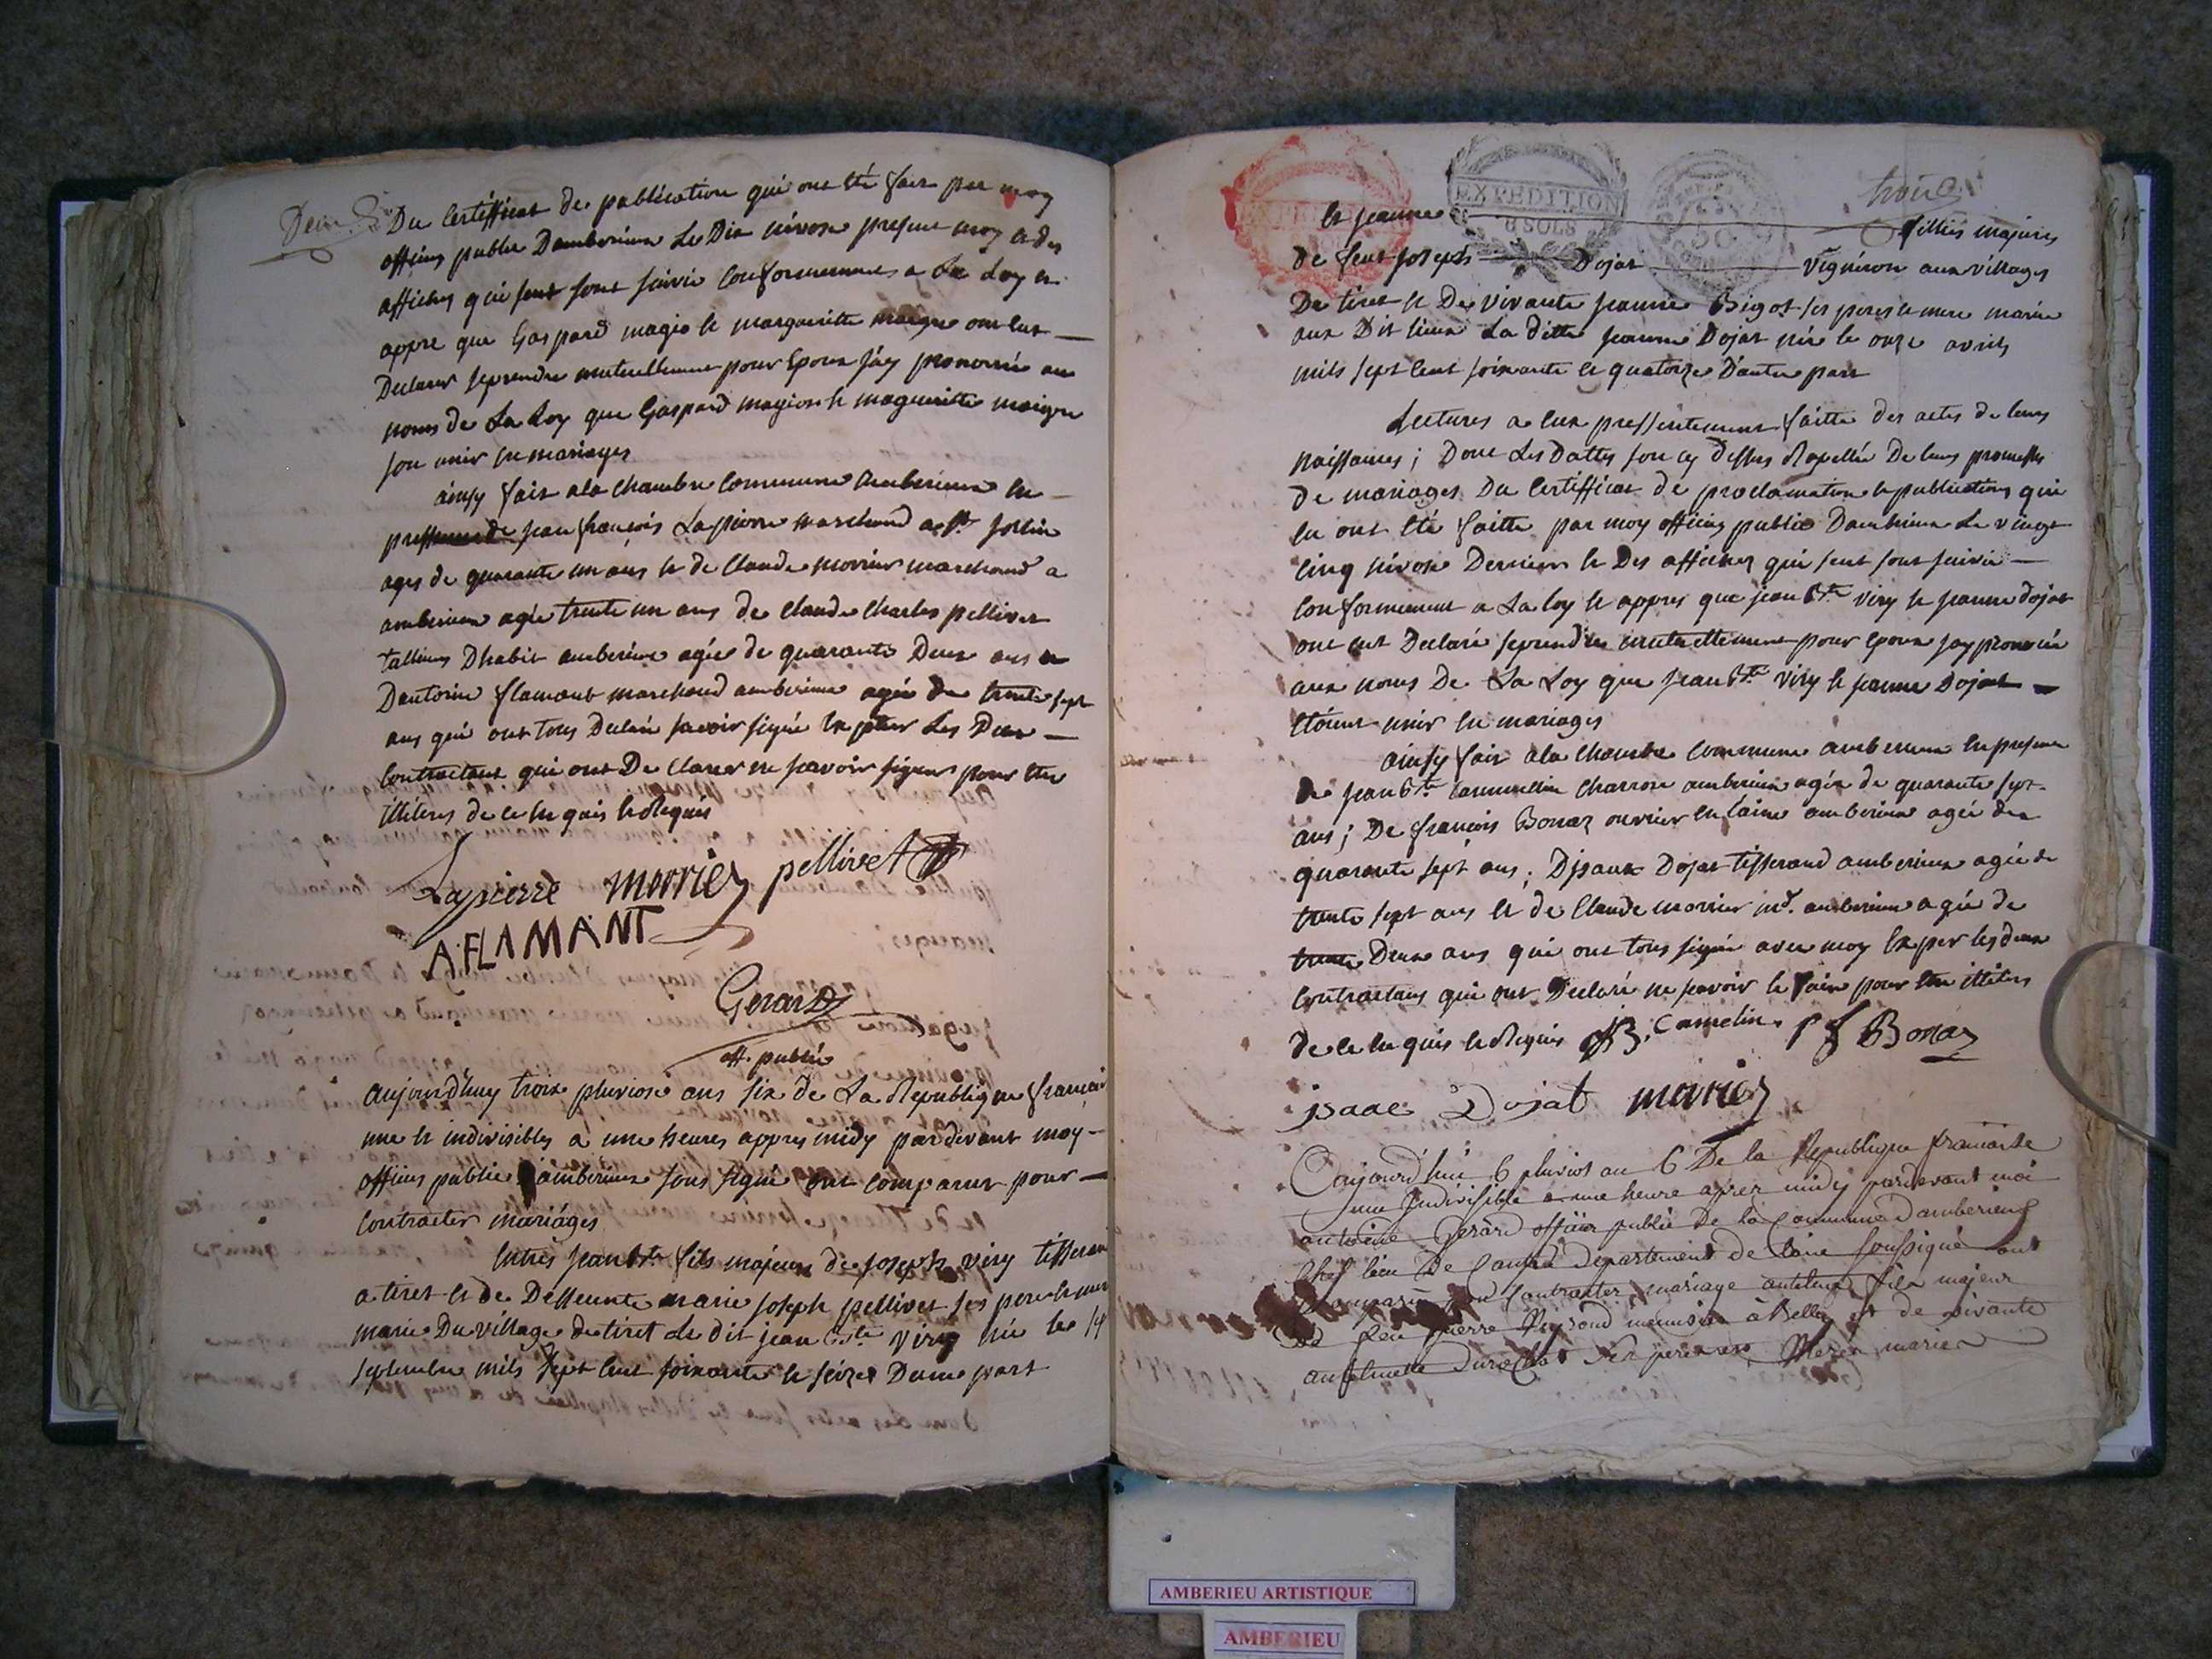 Deux
Du Certifficat de publication qui ont été fait par moy
officiers public Damberieux Le Dix nivose present moy et des
affiches qui sont suivie Conformement a La Loy et
appre que Gaspard magio et margueritte maigre ont eut
Declarer seprendre mutuellement pour Epoux jáy prononcée au
noms de La Loy que Gaspard et marguerite maigre
son unir en mariages
ainsy fait ala chambre Commune amberieux en
de jean françois Lapierre marchand a
ages de quarante un ans et de Claude morrier marchand a
amberieux agée trente un ans de Claude Charles pellivet
Dhabit amberieux agée de quarante Deux ans et
Dantoine flamant marchand amberieux agée de trente sept
ans qui ont tous Declaré savoir signé Les Deux
Contractant qui ont De Clarer ne savoir signer pour etre
illiteres de ce en quis et Requis
Lapierre morrier pellivet
A.FLAMANT
Gerard
off. public
aujourd'huy trois pluviose ans six de La Republique française
une et indivisibles a une heures appres midy pardevant moy
officiers public amberieux sous signé ont comparut pour
contracter mariáges
Entres jean Bte fils majeurs de joseph viry tisserand
a tiret et de Deffeunte marie joseph pellivet ses pere et mere
marie Du village de tiret Le dit jean Bte viry née le 14
septembre mils sept cent soixante et seize Dune part
trois
et jeanne filles majeures
EXPEDITION
de feut joseph Dojat Vigneron aux villages
8 SOLS
De tiret et De vivante jeanne Bigot ses peres et mere marie
aux Dit lieux La ditte jeanne Dojat née le onze avrils
mils sept cent soixante et quatorze Dautre part
Lectures a eux pressentement faitte des actes de leurs
naissances ; Dont Les Dattes son cy dessus Rapellée De leurs promesses
de mariages Du Certifficat de proclamation et publications qui
en ont été faitte par moy officiers public Damberieux Le vingt
cinq nivose Derniers et Des affiches qui sont suivie
Conformement a La loy et appres que jean Bte viry et jeanne dojat
ont eut Declaré seprendres mutuellement pour Epoux jay prononcée
aux noms De La Loy que jean Bte viry et jeanne Dojat
étoient unir en mariages
ainsy fait ala chambre commune amberieux en presence
De jean Bte charron amberieux agée de quarante sept
ans ; De françois Bonaz ouvrier en laine amberieux agée de
quarante sept ans ; Disaac Dojat tisserand amberieux agée de
trente sept ans et de Claude morrier md. amberieux agée de
trente Deux ans qui ont tous signée avec moy les deux
Contractans qui ont Declaré ne savoir le faire pour etre illiteres
de ce en quis et Requis JB. Camelin f Bonaz
isaac Dojat morrier
aujourd'hui 6 pluviot an 6 De la Republique francaise
une Indivisible a une heure aprez midy pardevant moi
antoine Gerard officier public De la Commune Damberieux
chef lieu De Canton Departement de Lain soussigné ont
comparu pour Contracter mariage fils majeur
De feu pierre menusier à Belley et de vivante
ses pere et Mere mariez
AMBERIEU ARTISTIQUE
AMBERIEU